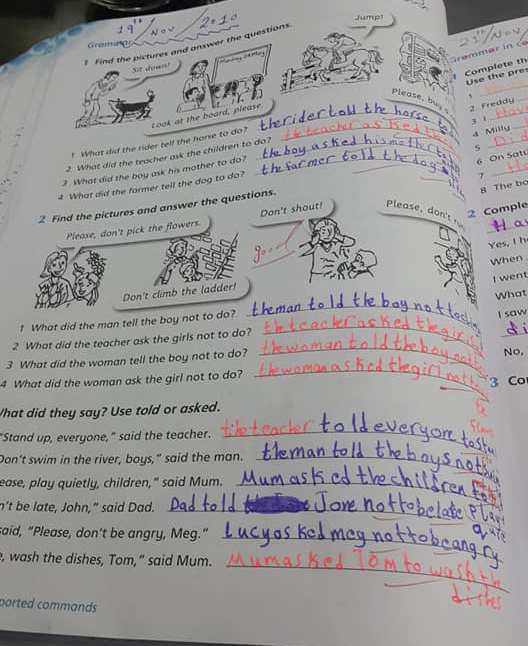 19th / Nov / 2010
Grammar
1 Find the pictures and answer the questions.
Sit down!
Monday 24 May
Jump!
Look at the board, please.
Please, buy
1 What did the rider tell the horse to do? the rider told the horse to
2 What did the teacher ask the children to do? the teacher asked the
3 What did the boy ask his mother to do? the boy asked his mother to
4 What did the farmer tell the dog to do? the farmer told the dog
2 Find the pictures and answer the questions.
Please, don't pick the flowers.
Don't shout!
Please, don't
Don't climb the ladder!
good
1 What did the man tell the boy not to do? the man told the boy not to
2 What did the teacher ask the girls not to do? the teacher asked the girls
3 What did the woman tell the boy not to do? the woman told the boy not to
4 What did the woman ask the girl not to do? the woman asked the girl not to
What did they say? Use told or asked.
"Stand up, everyone," said the teacher. the teacher told everyone to stu
Don't swim in the river, boys," said the man. the man told the boys not
ease, play quietly, children," said Mum. Mum asked the children to
Play
n't be late, John," said Dad. Dad told Jone not to be late
said, "Please, don't be angry, Meg." Lucy asked meg not to be angry.
e, wash the dishes, Tom," said Mum. Mum asked Tom to wash the
dishes
ported commands
Nov
Grammar in
Complete th
Use the pre
1
2 Freddy
3 I
4 Milly
5
6 On Satu
7
8 The b
2 Comple
Yes, I h
When
I went
What
I saw
No,
3 Co